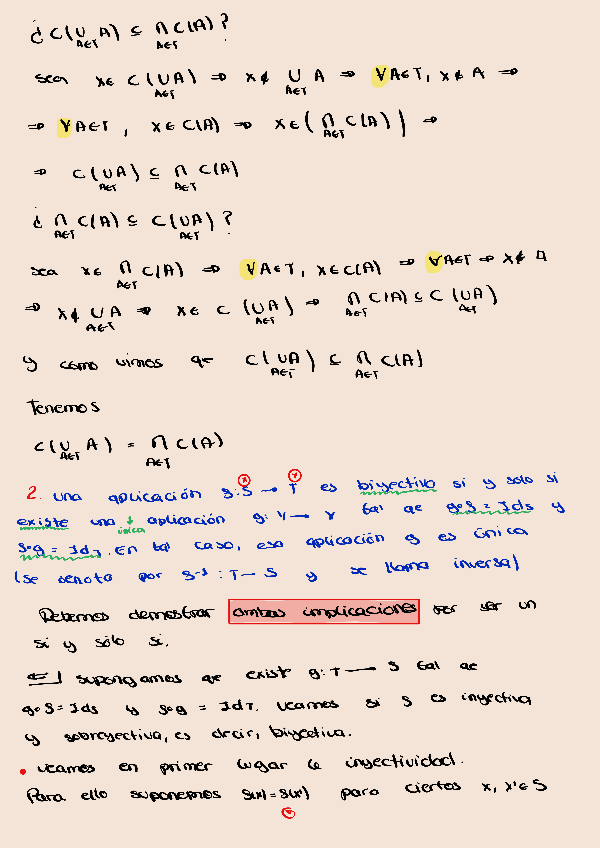 ¿ C(∪ A) ⊆ ∩ C(A) ?
A∈T A∈T
sea x∈ C(∪A) ⇒ x∉ ∪ A ⇒ ∀A∈T, x∉ A ⇒
A∈T A∈T
⇒ ∀A∈T , x∈C(A) ⇒ x∈(∩ C(A)) ⇒
A∈T
⇒ C(∪A) ⊆ ∩ C(A)
A∈T A∈T
¿ ∩ C(A) ⊆ C(∪A) ?
A∈T A∈T
sea x∈ ∩ C(A) ⇒ ∀A∈T, x∈C(A) ⇒ ∀A∈T ⇒ x∉ A
A∈T
⇒ x∉ ∪ A ⇒ x∈ C (∪A) ⇒ ∩ C(A) ⊆ C (∪A)
A∈T A∈T A∈T A∈T
y como vimos qe C(∪A) ⊆ ∩ C(A)
A∈T A∈T
Tenemos
C(∪ A) = ∩ C(A)
A∈T A∈T
2. una aplicación f: S → T es biyectivo si y solo si
existe una ↓ aplicación g: Y → Y tal qe g∘f = Ids y
única
f∘g = IdT. En tal caso, esa aplicación g es única
(se denota por f⁻¹ : T → S y se llama inversa)
Debemos demostrar ambas implicaciones por ser un
si y sólo si.
⇐] supongamos qe existe g: T → S tal qe
g∘f = Ids y f∘g = IdT. veamos si f es inyectiva
y sobreyectiva, es decir, biyectiva.
• veamos en primer lugar la inyectividad.
Para ello suponemos f(x) = f(x') para ciertos x, x' ∈ S